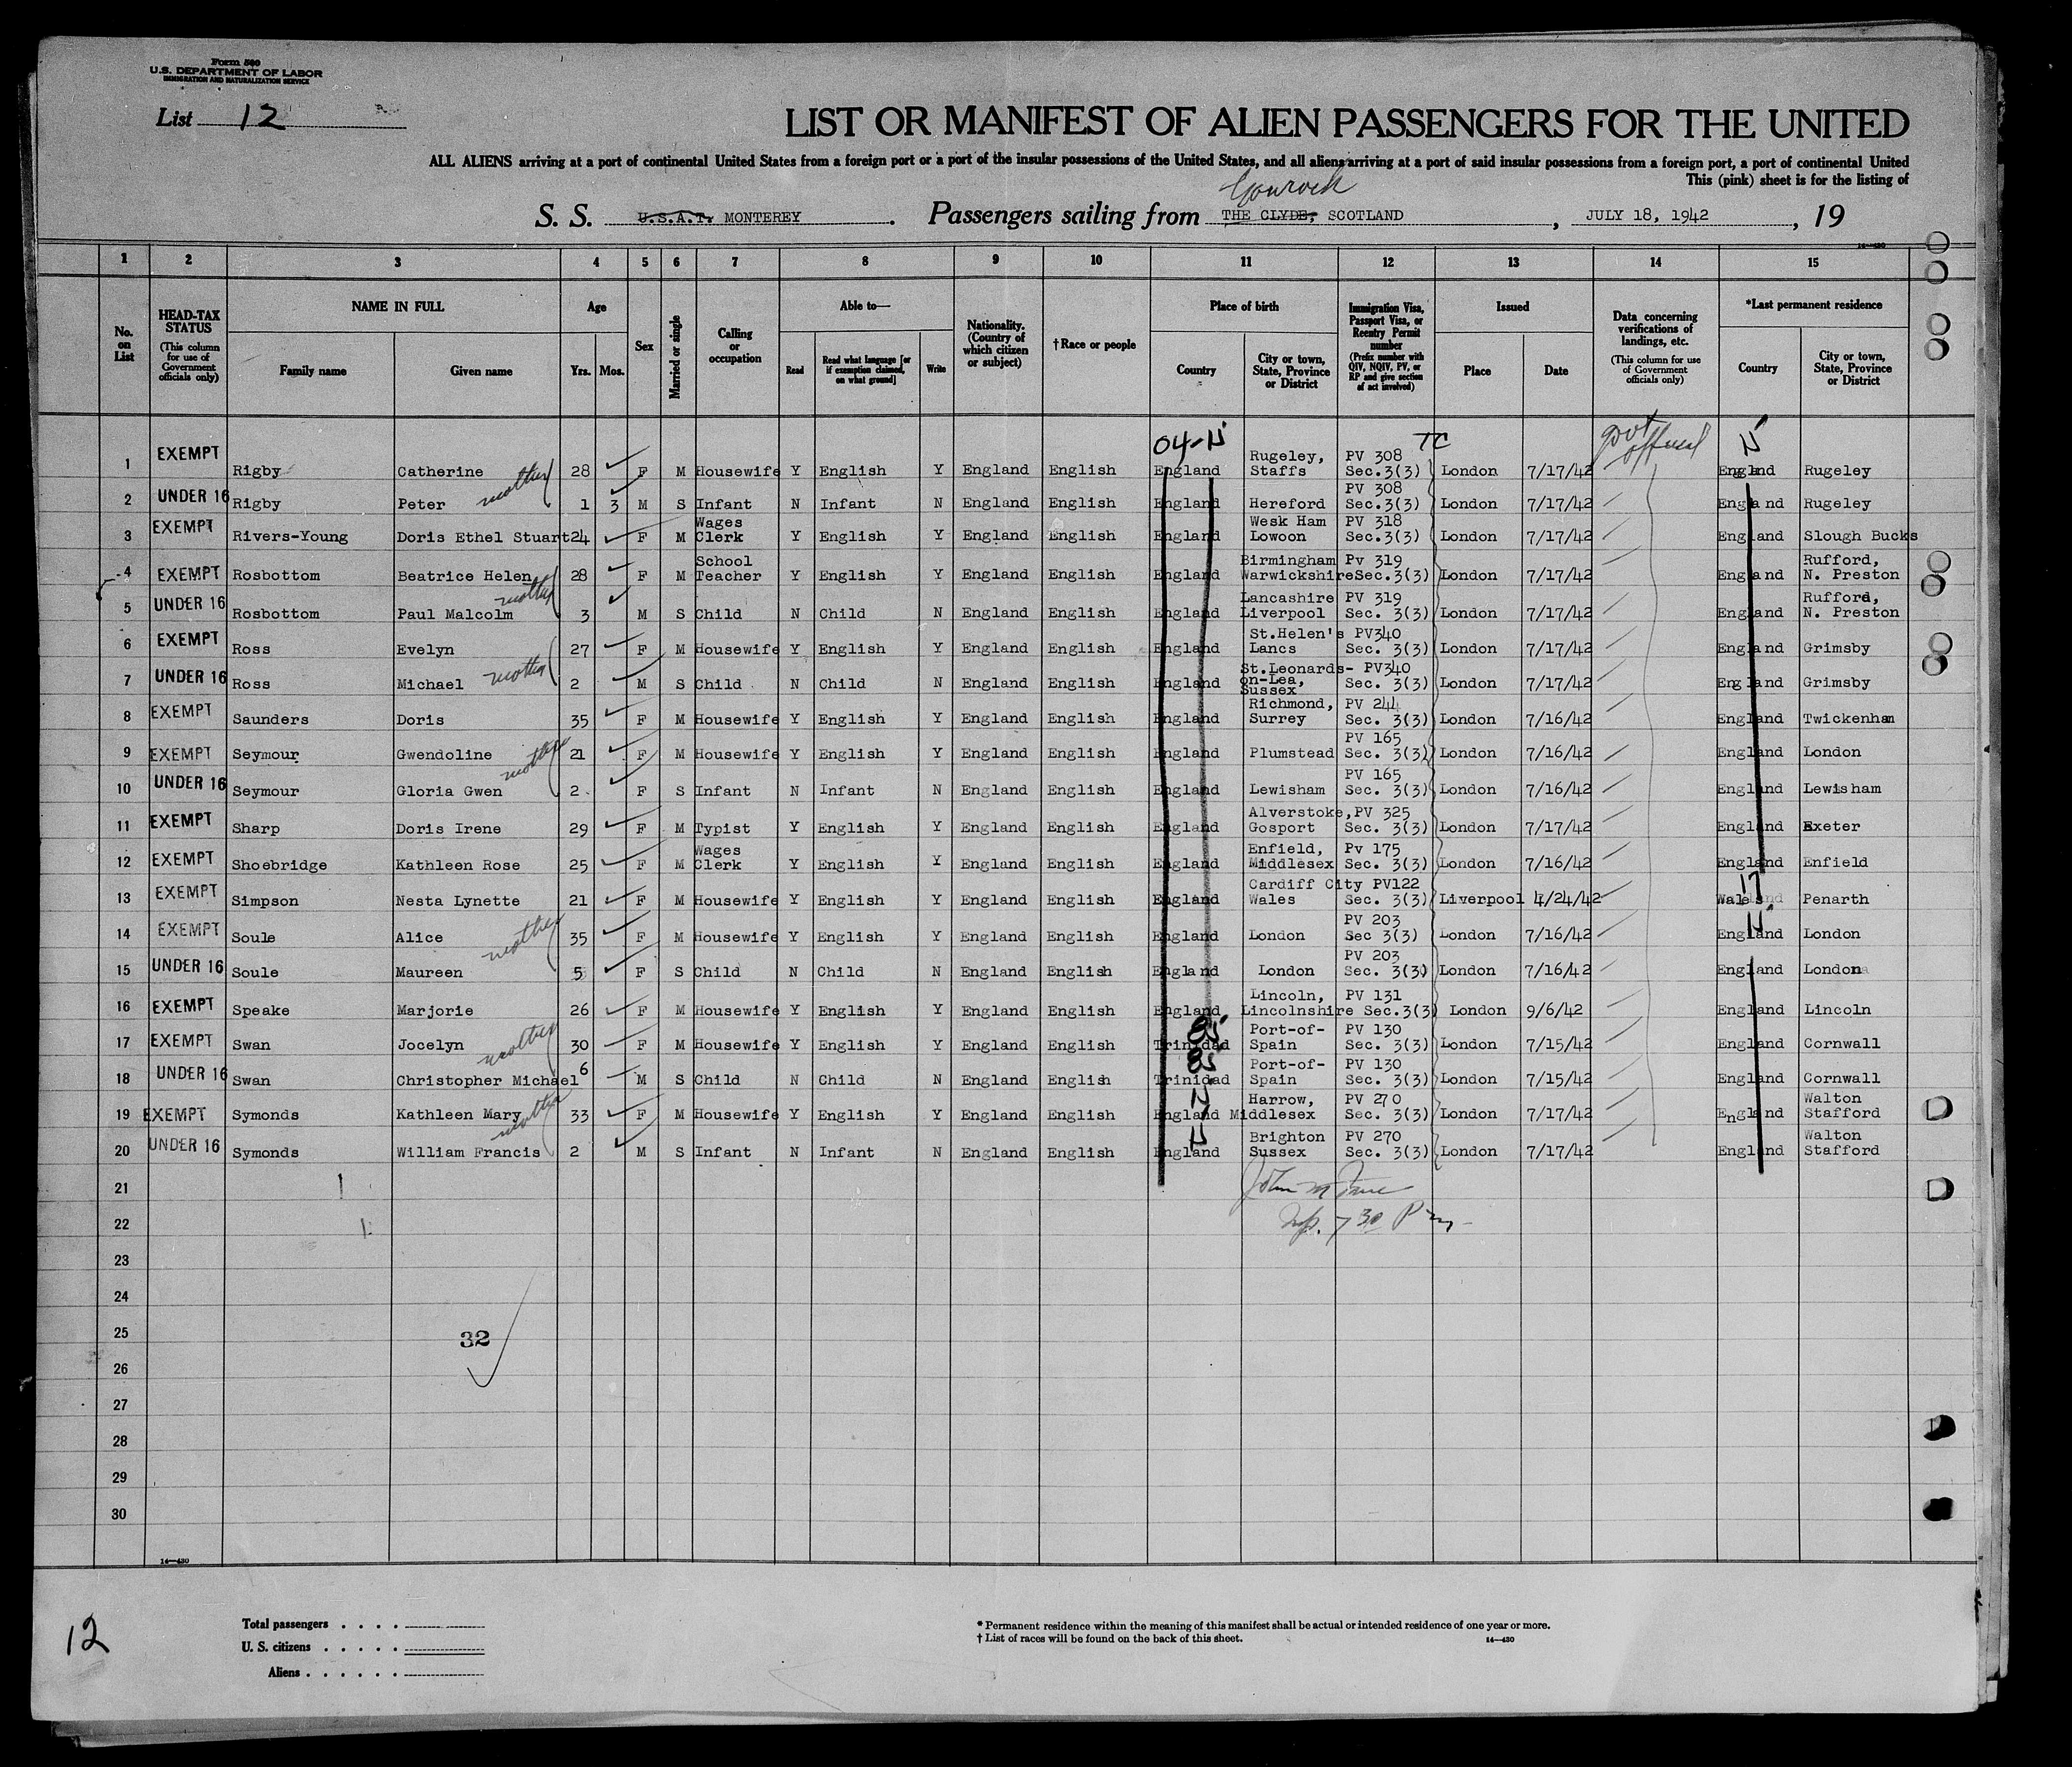 Form 500
U.S. DEPARTMENT OF LABOR
IMMIGRATION AND NATURALIZATION SERVICE
List 12
LIST OR MANIFEST OF ALIEN PASSENGERS FOR THE UNITED
ALL ALIENS arriving at a port of continental United States from a foreign port or a port of the insular possessions of the United States, and all aliens arriving at a port of said insular possessions from a foreign port, a port of continental United
This (pink) sheet is for the listing of
Gourock
S. S. U.S.A.T. MONTEREY . Passengers sailing from THE CLYDE, SCOTLAND , JULY 18, 1942 , 19
14—430
1 2 3 4 5 6 7 8 9 10 11 12 13 14 15
No. on List
HEAD-TAX STATUS (This column for use of Government officials only)
NAME IN FULL Family name Given name
Age Yrs. Mos.
Sex
Married or single
Calling or occupation
Able to— Read Read what language [or if exemption claimed, on what ground] Write
Nationality. (Country of which citizen or subject)
†Race or people
Place of birth Country City or town, State, Province or District
Immigration Visa, Passport Visa, or Reentry Permit number (Prefix number with QIV, NQIV, PV, or RP and give section of act involved)
Issued Place Date
Data concerning verifications of landings, etc. (This column for use of Government officials only)
*Last permanent residence Country City or town, State, Province or District
04-11 TC govt official
1 EXEMPT Rigby Catherine mother 28 F M Housewife Y English Y England English England Rugeley, Staffs PV 308 Sec.3(3) London 7/17/42 England Rugeley
2 UNDER 16 Rigby Peter 1 3 M S Infant N Infant N England English England Hereford PV 308 Sec.3(3) London 7/17/42 England Rugeley
3 EXEMPT Rivers-Young Doris Ethel Stuart 24 F M Wages Clerk Y English Y England English England Wesk Ham Lowoon PV 318 Sec.3(3) London 7/17/42 England Slough Bucks
4 EXEMPT Rosbottom Beatrice Helen mother 28 F M School Teacher Y English Y England English England Birmingham Warwickshire Pv 319 Sec.3(3) London 7/17/42 England Rufford, N. Preston
5 UNDER 16 Rosbottom Paul Malcolm 3 M S Child N Child N England English England Lancashire Liverpool PV 319 Sec. 3(3) London 7/17/42 England Rufford, N. Preston
6 EXEMPT Ross Evelyn 27 F M Housewife Y English Y England English England St.Helen's Lancs PV340 Sec. 3(3) London 7/17/42 England Grimsby
7 UNDER 16 Ross Michael mother 2 M S Child N Child N England English England St.Leonards-on-Lea, Sussex PV340 Sec. 3(3) London 7/17/42 England Grimsby
8 EXEMPT Saunders Doris 35 F M Housewife Y English Y England English England Richmond, Surrey PV 244 Sec. 3(3) London 7/16/42 England Twickenham
9 EXEMPT Seymour Gwendoline mother 21 F M Housewife Y English Y England English England Plumstead PV 165 Sec. 3(3) London 7/16/42 England London
10 UNDER 16 Seymour Gloria Gwen 2 F S Infant N Infant N England English England Lewisham PV 165 Sec. 3(3) London 7/16/42 England Lewisham
11 EXEMPT Sharp Doris Irene 29 F M Typist Y English Y England English England Alverstoke, Gosport PV 325 Sec. 3(3) London 7/17/42 England Exeter
12 EXEMPT Shoebridge Kathleen Rose 25 F M Wages Clerk Y English Y England English England Enfield, Middlesex Pv 175 Sec. 3(3) London 7/16/42 England Enfield
13 EXEMPT Simpson Nesta Lynette 21 F M Housewife Y English Y England English England Cardiff City Wales PV122 Sec. 3(3) Liverpool 4/24/42 17 Wales Penarth
14 EXEMPT Soule Alice mother 35 F M Housewife Y English Y England English England London PV 203 Sec 3(3) London 7/16/42 England London
15 UNDER 16 Soule Maureen 5 F S Child N Child N England English England London PV 203 Sec. 3(3) London 7/16/42 England London
16 EXEMPT Speake Marjorie 26 F M Housewife Y English Y England English England Lincoln, Lincolnshire PV 131 Sec.3(3) London 9/6/42 England Lincoln
17 EXEMPT Swan Jocelyn mother 30 F M Housewife Y English Y England English Trinidad Port-of-Spain PV 130 Sec. 3(3) London 7/15/42 England Cornwall
18 UNDER 16 Swan Christopher Michael 6 M S Child N Child N England English Trinidad Port-of-Spain PV 130 Sec. 3(3) London 7/15/42 England Cornwall
19 EXEMPT Symonds Kathleen Mary mother 33 F M Housewife Y English Y England English England Harrow, Middlesex PV 270 Sec. 3(3) London 7/17/42 England Walton Stafford
20 UNDER 16 Symonds William Francis 2 M S Infant N Infant N England English England Brighton Sussex PV 270 Sec. 3(3) London 7/17/42 England Walton Stafford
21 John M
22 7 30 Pm
23
24
25 32
26
27
28
29
30
14—430
12
Total passengers . . . .
U. S. citizens . . . . .
Aliens . . . . . .
* Permanent residence within the meaning of this manifest shall be actual or intended residence of one year or more.
† List of races will be found on the back of this sheet. 14—430